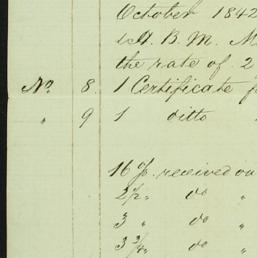 October 1842
B. M. M
the rate of 2
No. 8 1 Certificate f
" 9 1 ditto
16 % received on
2½ " do "
3 " do "
3¾ " do "